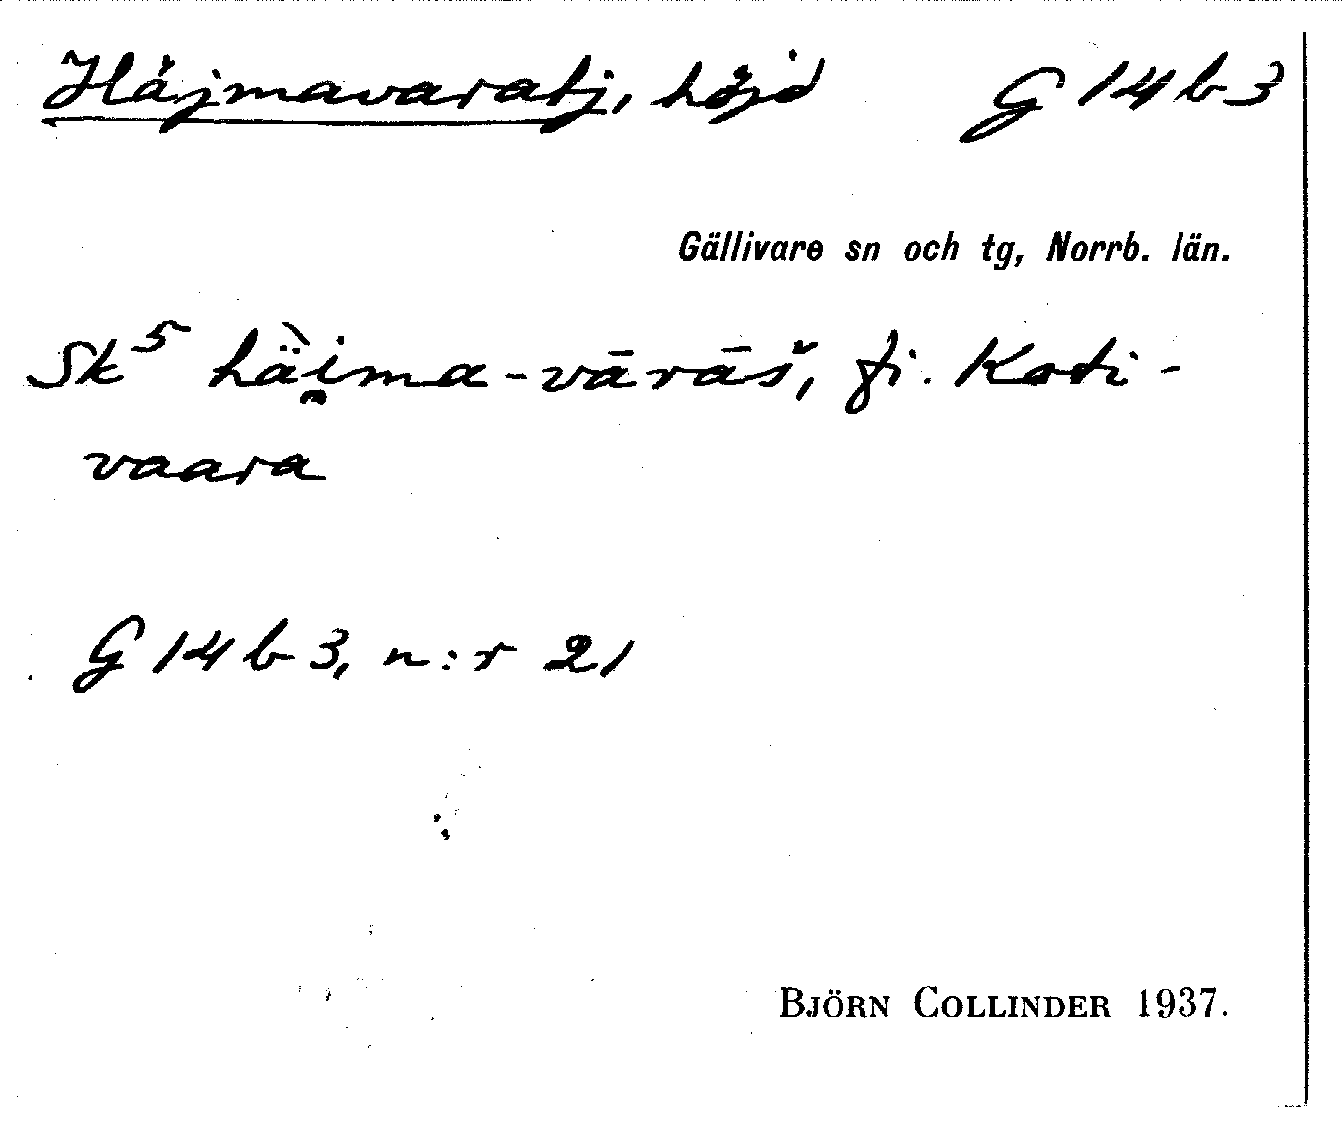 Håjmavaratj, höjd G 14 b 3
Gällivare sn och tg, Norrb. län.
Sk⁵ hä̀i̯ma-vārāš, fi. Koti-
vaara
G 14 b 3, n:r 21
BJÖRN COLLINDER 1937.